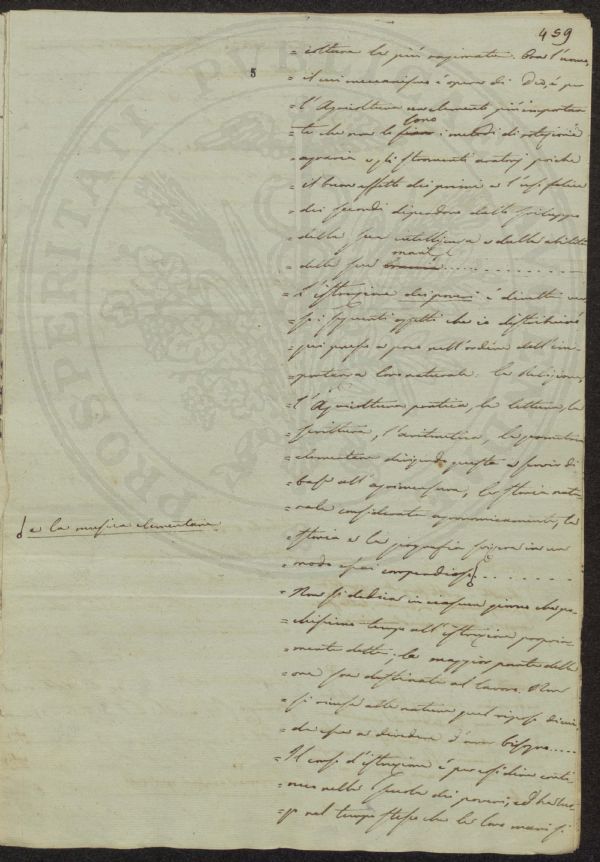 459
5
= coltura la più ragionata. Ora l'uomo,
= il cui meccanismo è opera di Dio, è per
= l'Agricoltura un elemento più importan
= te che non lo siano sono i metodi di rotazione
= agraria e gli stromenti aratorj poiche
= il buon effetto dei primi e l'uso felice
= dei secondi dipendono dallo sviluppo
= della sua intelligenza e dalla abilità
= delle sue braccia mani ..........
= L'istruzione dei poveri è diretta
= seguenti oggetti che io distribuirò
= qui presso a poco nell'ordine dell'im-
= portanza loro naturale: la Religione,
= l'Agricoltura pratica, la lettura, la
= scrittura, l'aritmetica, la geometria
= elementare dirigendo questa a servir di
= base all'agrimensura, la storia natu-
= rale considerata agronomicamente, la
= storia e la geografia in un
= modo assai compendioso .......
e la musica elementare
= Non si dedica in ciascun giorno che po-
= chissimo tempo all'istruzione propria-
= mente detta; la maggior parte delle
= ore son destinate al lavoro. Non
= si ricusa alla natura quel riposo di cui
= dessa a d'aver bisogno.....
= Il corso d'istruzione è per così dire conti
= nuo nella scuola dei poveri, ed ha luo
= go nel tempo stesso che le loro mani si
PROSPERITATI PUBLICAE